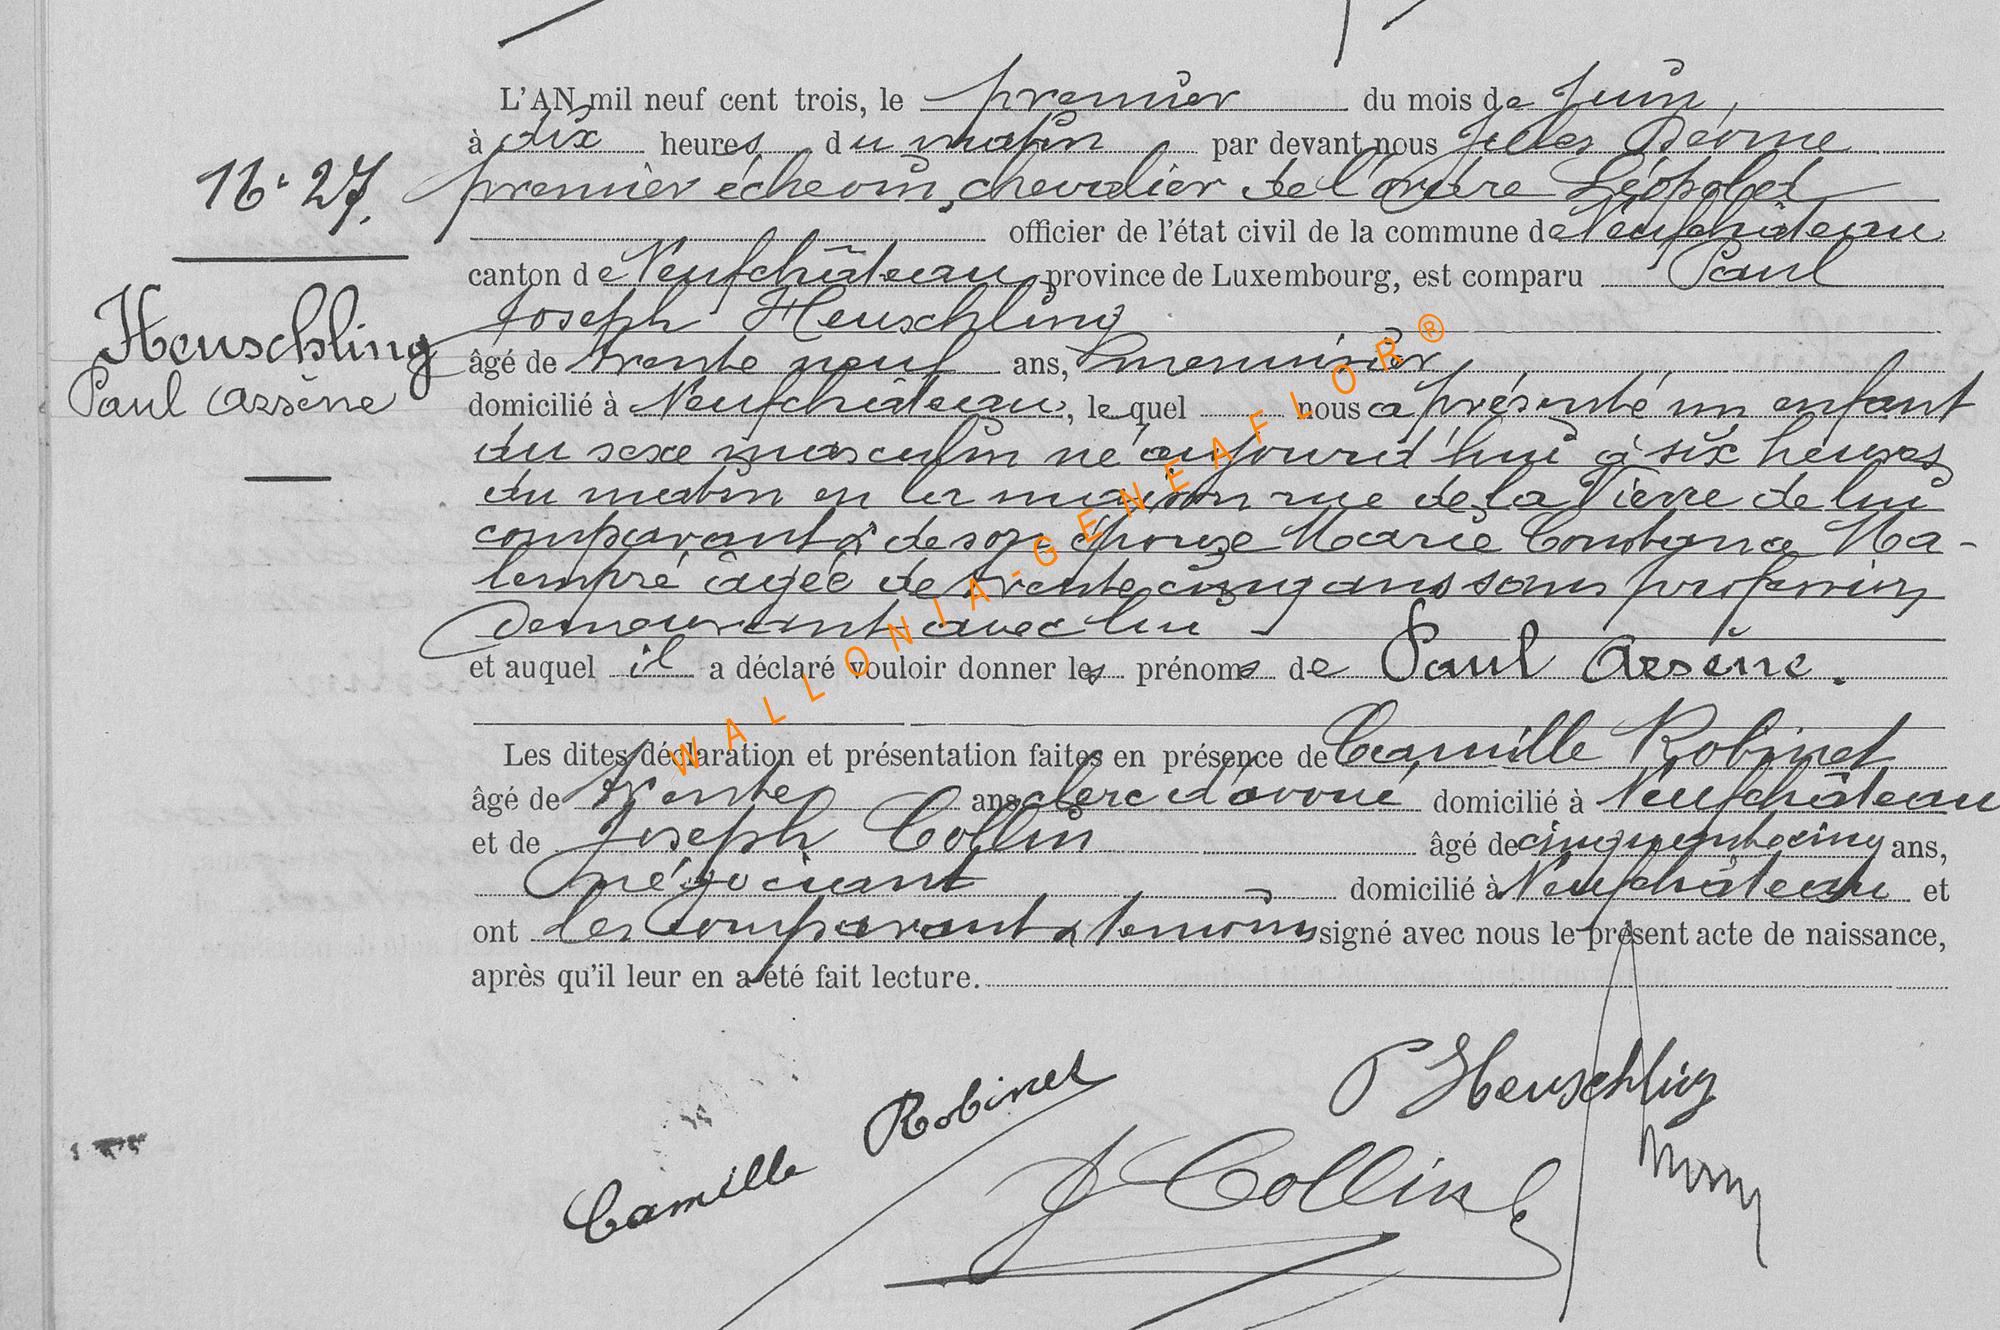 L'AN mil neuf cent trois, le premier du mois de Juin,
à dix heures du matin par devant nous Jules
premier échevin, chevalier de l'ordre Léopold
officier de l'état civil de la commune de Neufchâteau
canton de Neufchâteau province de Luxembourg, est comparu Paul
Joseph Heuschling
âgé de trente neuf ans, menuisier,
domicilié à Neufchâteau, lequel nous a présenté un enfant
du sexe masculin né aujourd'hui à six heures
du matin en la maison rue de la de lui
comparant & de son épouse Marie Constance Ma-
lempré âgée de trente cinq ans sans profession
demeurant avec lui
et auquel il a déclaré vouloir donner les prénoms de Paul Arsène.
Les dites déclaration et présentation faites en présence de Camille Robinet
âgé de trente ans clerc d'avoué domicilié à Neufchâteau
et de Joseph Collin âgé de cinquante cinq ans,
négociant domicilié à Neufchâteau et
ont les comparant & témoins signé avec nous le présent acte de naissance,
après qu'il leur en a été fait lecture.
N° 27.
Heuschling
Paul Arsène
WALLONIA-GENEAFLOR®
P Heuschling
Camille Robinet
J Collin